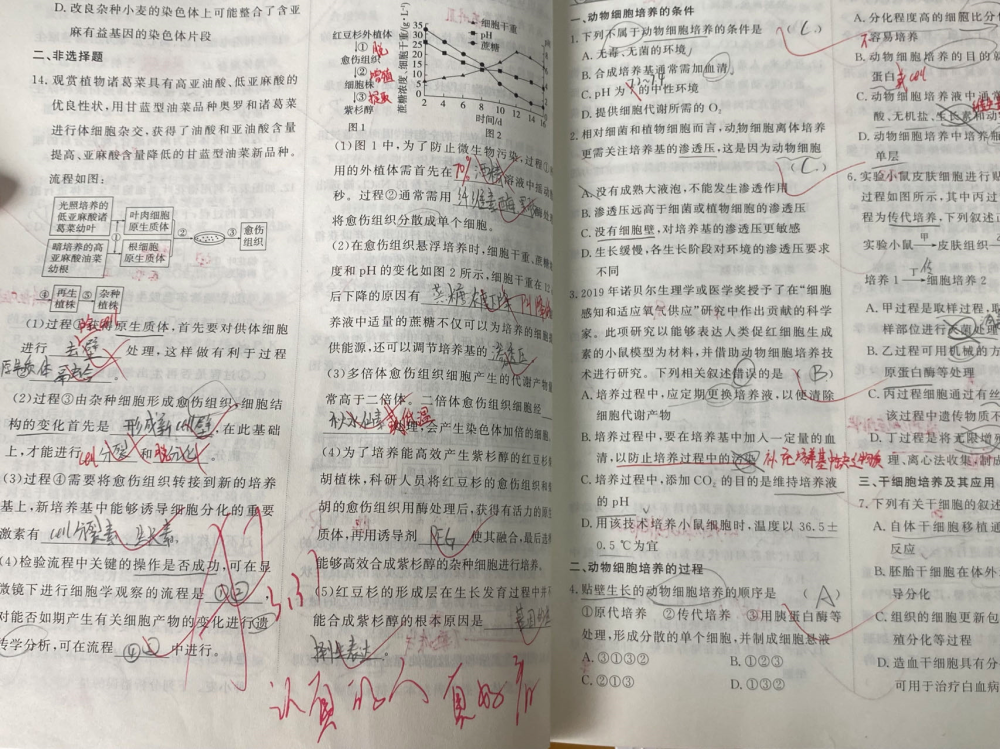 D. 改良杂种小麦的染色体上可能整合了含亚
麻有益基因的染色体片段
二、非选择题
14. 观赏植物诸葛菜具有高亚油酸、低亚麻酸的
优良性状,用甘蓝型油菜品种奥罗和诸葛菜
进行体细胞杂交,获得了油酸和亚油酸含量
提高、亚麻酸含量降低的甘蓝型油菜新品种。
流程如图:
光照培养的
低亚麻酸诸
葛菜幼叶
叶肉细胞
原生质体
暗培养的高
亚麻酸油菜
幼根
根细胞
原生质体
① ② ③
愈伤
组织
④ 再生
植株
⑤ 杂种
植株
(1)过程①获得原生质体,首先要对供体细胞
进行 去壁 处理,这样做有利于过程
原生质体
(2)过程③由杂种细胞形成愈伤组织,细胞结
构的变化首先是 形成新cell壁,在此基础
上,才能进行 cell分裂 和 脱分化。
(3)过程④需要将愈伤组织转接到新的培养
基上,新培养基中能够诱导细胞分化的重要
激素有 细胞分裂素 生长素。
(4)检验流程中关键的操作是否成功,可在显
微镜下进行细胞学观察的流程是 ①②
对能否如期产生有关细胞产物的变化进行遗
传学分析,可在流程 ④② 中进行。
红豆杉外植体
↓① 脱
愈伤组织
↓②
细胞株
↓③ 提取
紫杉醇
图 1
蔗糖浓度、细胞干重/(g·L⁻¹)
35
30
25
20
15
10
5
0
细胞干重
pH
蔗糖
2 4 6 8 10 12 14 16
时间/d
图 2
(1)图 1 中,为了防止微生物污染,过程①
用的外植体需首先在 70%酒精 溶液中
秒。过程②通常需用 纤维素酶
将愈伤组织分散成单个细胞。
(2)在愈伤组织悬浮培养时,细胞干重、蔗糖
度和 pH 的变化如图 2 所示,细胞干重在 12
后下降的原因有 蔗糖 PH
养液中适量的蔗糖不仅可以为培养的细胞
供能源,还可以调节培养基的 渗透压
(3)多倍体愈伤组织细胞产生的代谢产物
常高于二倍体。二倍体愈伤组织细胞经
秋水仙素 或低温 ,会产生染色体加倍的细胞
(4)为了培养能高效产生紫杉醇的红豆杉
胡植株,科研人员将红豆杉的愈伤组织和
胡的愈伤组织用酶处理后,获得有活力的原
质体,再用诱导剂 PEG 使其融合,最后选
能够高效合成紫杉醇的杂种细胞进行培养。
(5)红豆杉的形成层在生长发育过程中并
能合成紫杉醇的根本原因是 基因的
认真的人 真好
一、动物细胞培养的条件
1. 下列不属于动物细胞培养的条件是 ( C )
A. 无毒、无菌的环境
B. 合成培养基通常需加血清
C. pH 为 的中性环境
D. 提供细胞代谢所需的 O₂
2. 相对细菌和植物细胞而言,动物细胞离体培养
更需关注培养基的渗透压,这是因为动物细胞
( C )
A. 没有成熟大液泡,不能发生渗透作用
B. 渗透压远高于细菌或植物细胞的渗透压
C. 没有细胞壁,对培养基的渗透压更敏感
D. 生长缓慢,各生长阶段对环境的渗透压要求
不同
3. 2019 年诺贝尔生理学或医学奖授予了在“细胞
感知和适应氧气供应”研究中作出贡献的科学
家。此项研究以能够表达人类促红细胞生成
素的小鼠模型为材料,并借助动物细胞培养技
术进行研究。下列相关叙述错误的是 ( B )
A. 培养过程中,应定期更换培养液,以便清除
细胞代谢产物
B. 培养过程中,要在培养基中加入一定量的血
清,以防止培养过程中的污染 补充培养基中缺乏的物质
C. 培养过程中,添加 CO₂ 的目的是维持培养液
的 pH
D. 用该技术培养小鼠细胞时,温度以 36.5±
0.5 ℃为宜
二、动物细胞培养的过程
4. 贴壁生长的动物细胞培养的顺序是 ( A )
①原代培养 ②传代培养 ③用胰蛋白酶等
处理,形成分散的单个细胞,并制成细胞悬液
A. ③①③② B. ①②③
C. ②①③ D. ①③②
A. 分化程度高的细胞比分
不容易培养
B. 动物细胞培养的目的
蛋白或cell
C. 动物细胞培养液中通常
酸、无机盐、生长素和动
D. 动物细胞培养中培养
单层
6. 实验小鼠皮肤细胞进行
过程如图所示,其中丙过
程为传代培养,下列叙述
实验小鼠 甲→ 皮肤组织
培养 1 丁→ 细胞培养 2
传
A. 甲过程是取样过程,取
样部位进行灭菌处理
B. 乙过程可用机械的方
原蛋白酶等处理
C. 丙过程细胞通过有丝
该过程中遗传物质不
D. 丁过程是将无限增殖
理、离心法收集,制成
三、干细胞培养及其应用
7. 下列有关干细胞的叙述
A. 自体干细胞移植通
反应
B. 胚胎干细胞在体外
导分化
C. 组织的细胞更新包
殖分化等过程
D. 造血干细胞具有分
可用于治疗白血病